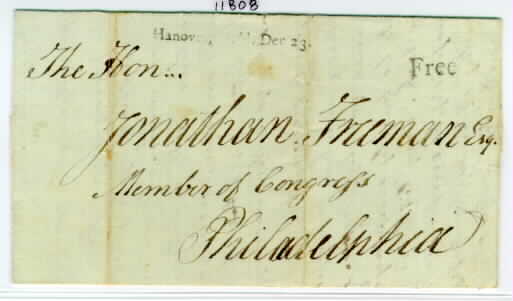 11808
Hanov Dec 23.
Free
The Hon..
Jonathan Freeman Esq.
Member of Congress
Philadelphia